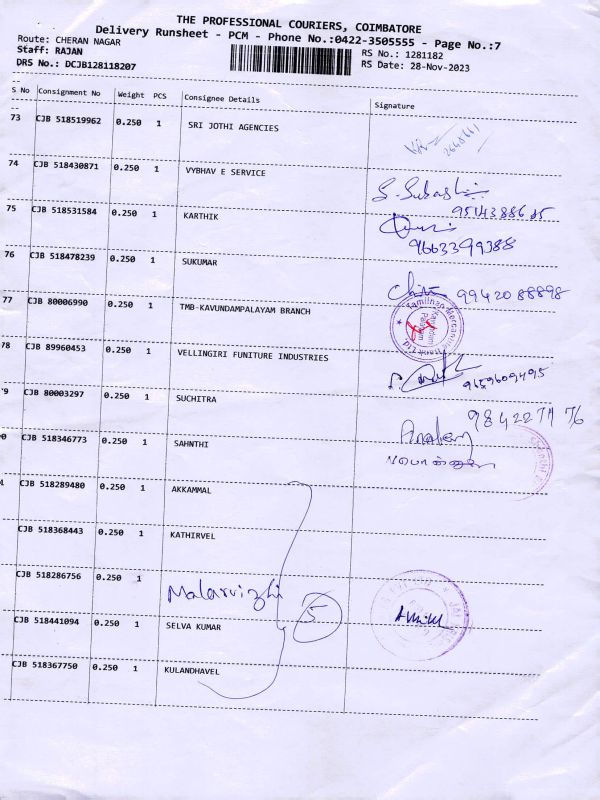 THE PROFESSIONAL COURIERS, COIMBATORE
Delivery Runsheet - PCM - Phone No.:0422-3505555 - Page No.:7
Route: CHERAN NAGAR
Staff: RAJAN
DRS No.: DCJB128118207
RS No.: 1281182
RS Date: 28-Nov-2023
S No Consignment No Weight PCS Consignee Details Signature
73 CJB 518519962 0.250 1 SRI JOTHI AGENCIES
74 CJB 518430871 0.250 1 VYBHAV E SERVICE
75 CJB 518531584 0.250 1 KARTHIK
9663399388
76 CJB 518478239 0.250 1 SUKUMAR
9942088898
77 CJB 80006990 0.250 1 TMB-KAVUNDAMPALAYAM BRANCH
78 CJB 89960453 0.250 1 VELLINGIRI FUNITURE INDUSTRIES
9659609495
CJB 80003297 0.250 1 SUCHITRA
CJB 518346773 0.250 1 SAHNTHI
CJB 518289480 0.250 1 AKKAMMAL
CJB 518368443 0.250 1 KATHIRVEL
CJB 518286756 0.250 1 Malarvizhi
5
CJB 518441094 0.250 1 SELVA KUMAR
CJB 518367750 0.250 1 KULANDHAVEL